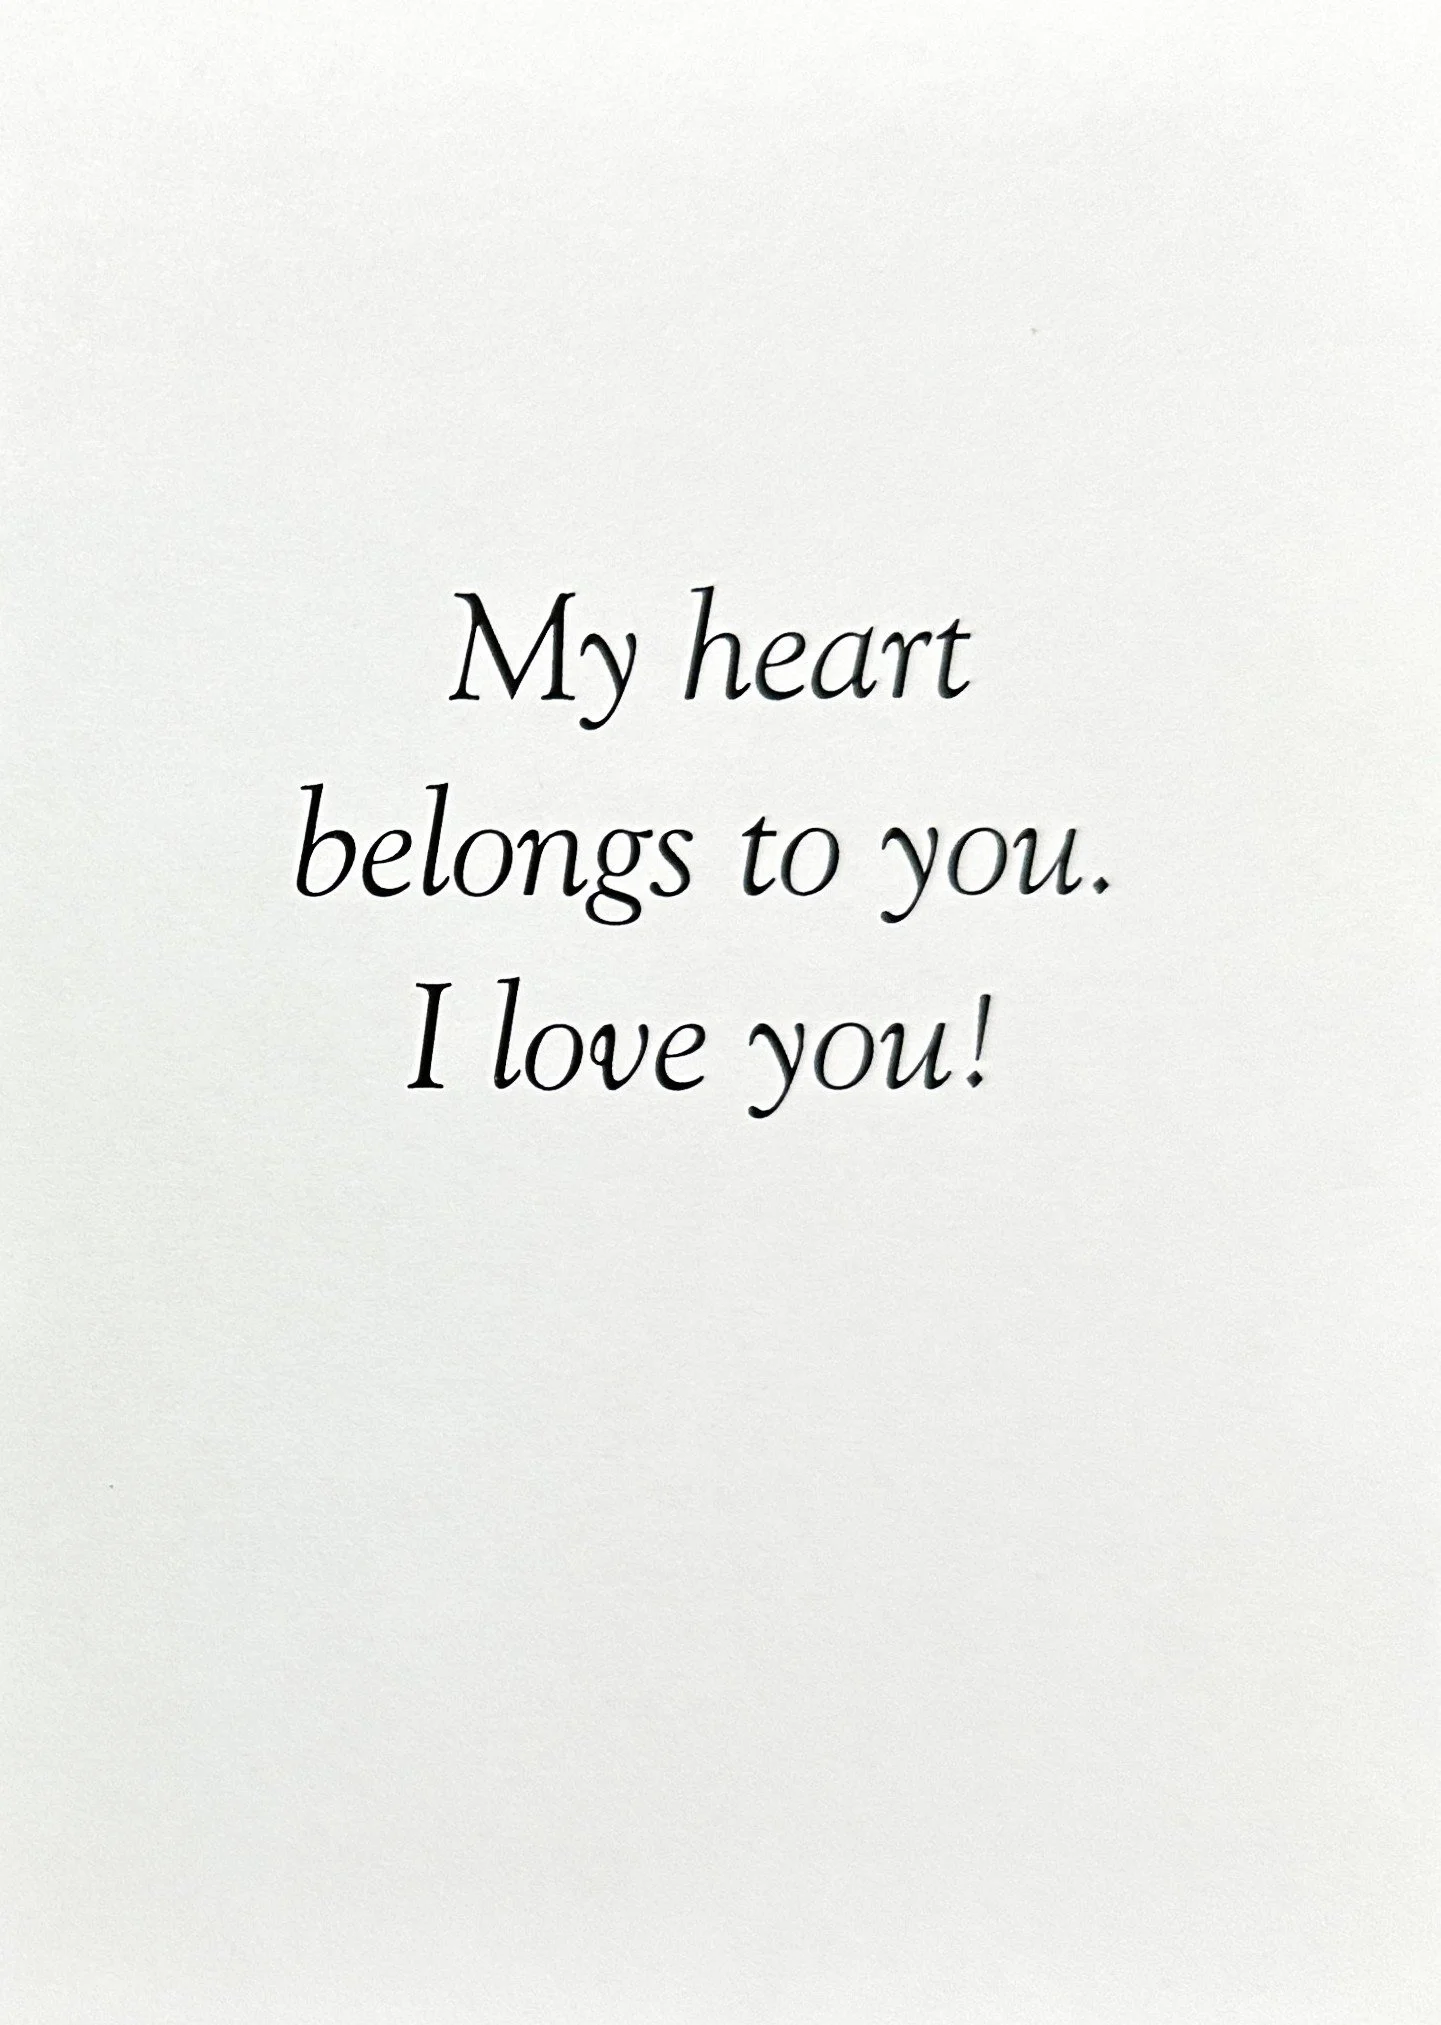 My heart
belongs to you.
I love you!